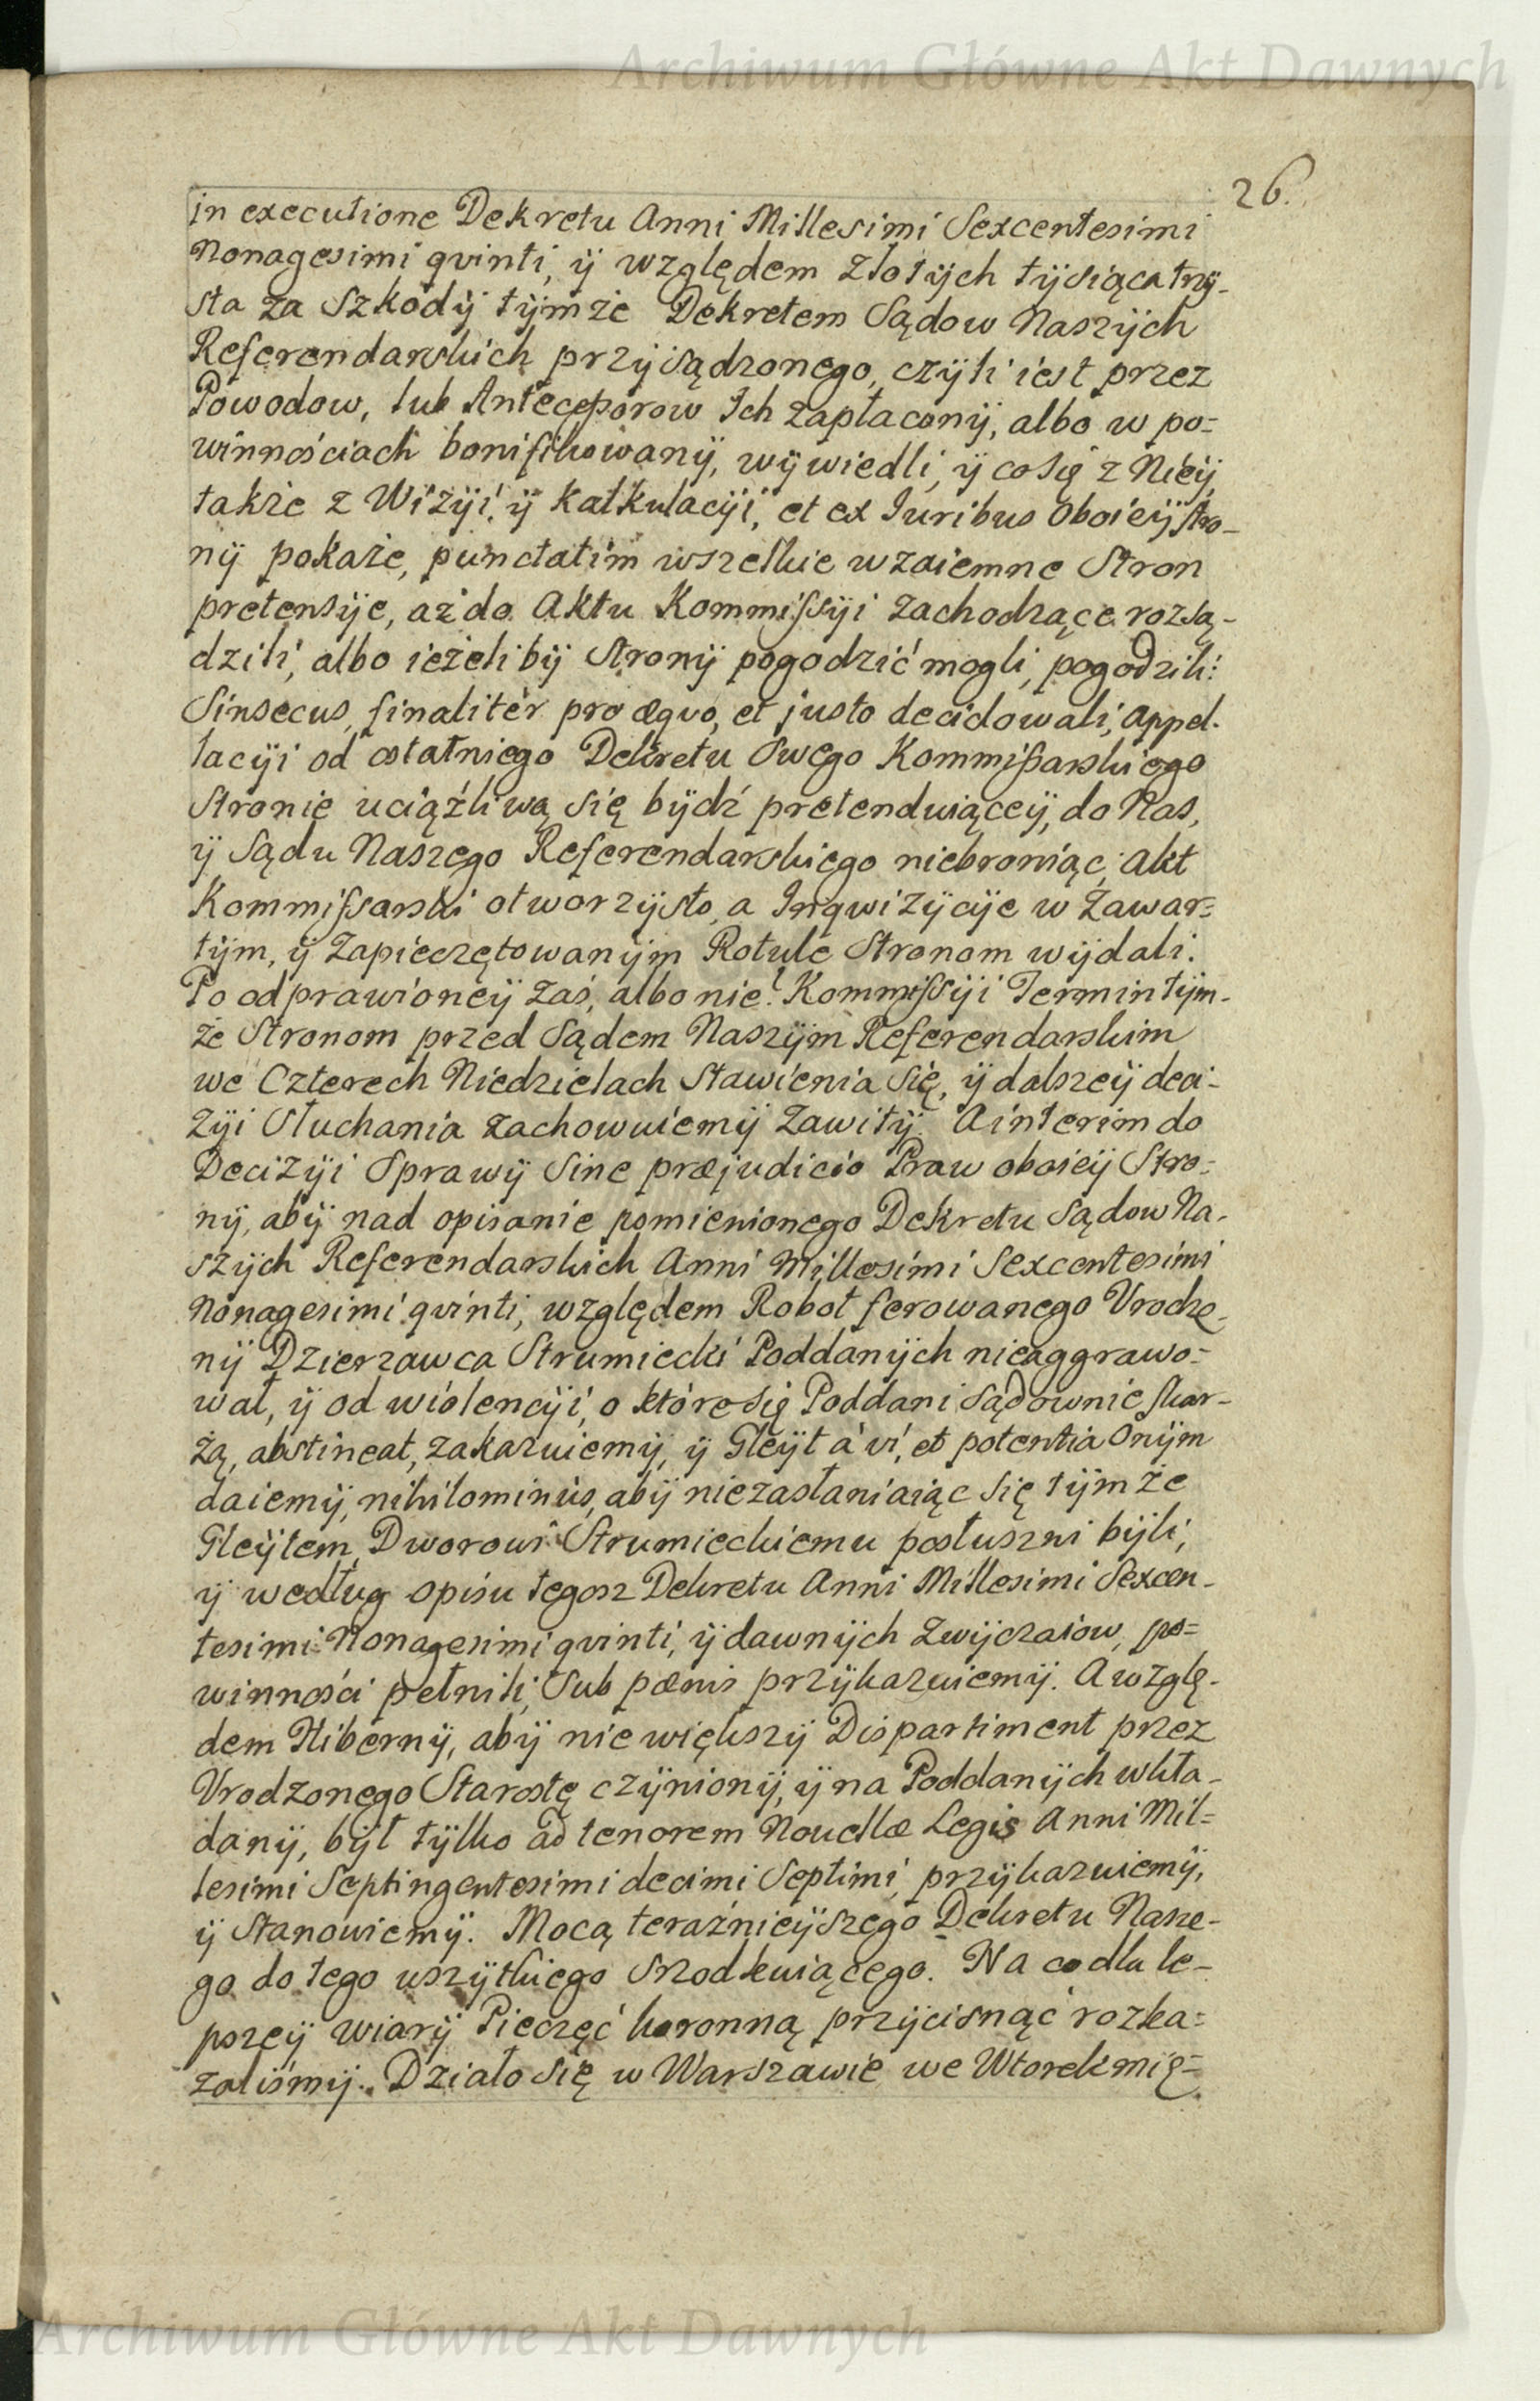 Archiwum Główne Akt Dawnych
26.
in executione Dekretu Anni Millesimi Sexcentesimi
Nonagesimi qvinti, ÿ względem Złotÿch tÿsiąca trzÿ-
sta za Szkodÿ tÿmże Dekretem Sądow Naszÿch
Referendarskich przÿsądzonego, czÿli iest przez
Powodow, lub Antecessorow Ich zapłaconÿ, albo w po=
winnościach bonifikowanÿ, wÿwiedli, ÿ co się z Nieÿ,
także z Wizÿi, ÿ Kalkulacÿi, et ex Iuribus oboieÿ stro-
nÿ pokaże, punctatim wszelkie wzaiemne Stron
pretensÿe, aż do Aktu Kommissÿi zachodzące rozsą-
dzili, albo ieżeli bÿ Stronÿ pogodzić mogli, pogodzili:
Sinsecus, finalitér pro æqvo, et justo decidowali, Appel-
lacÿi od ostatniego Dekretu Swego Kommissarskiego
Stronie uciążliwą się bÿdź pretenduiąceÿ, do Nas,
ÿ Sądu Naszego Referendarskiego niebroniąc, Akt
Kommissarski otworzÿsto, a Inqwizÿcÿe w Zawar=
tÿm, ÿ Zapieczętowanÿm Rotule Stronom wÿdali.
Po odprawioneÿ zaś, albo nie? Kommissÿi Termin tÿm-
że Stronom przed Sądem Naszÿm Referendarskim
we Czterech Niedzielach Stawienia się, ÿ dalszeÿ deci-
zÿi Słuchania zachowuiemÿ Zawitÿ. A interim do
Decizÿi Sprawÿ Sine præjudicio Praw oboieÿ Stro=
nÿ, abÿ nad opisanie pomienionego Dekretu Sądow Na-
szÿch Referendarskich Anni Millesimi Sexcentesimi
Nonagesimi qvinti, względem Robot ferowanego Vrodzo-
nÿ Dzierzawca Strumiecki Poddanÿch nieaggrawo=
wał, ÿ od wiolencÿi, o które się Poddani Sądownie skar-
żą, abstineat, zakazuiemÿ, ÿ Gleÿt á vi, et potentia Onÿm
daiemÿ, nihilominùs, abÿ niezasłaniaiąc się tÿmże
Gleÿtem, Dworowi Strumieckiemu posłuszni bÿli,
ÿ według opisu tegosz Dekretu Anni Millesimi Sexcen-
tesimi Nonagesimi qvinti, ÿ dawnÿch zwÿczaiow, po=
winności pełnili, Sub pænis przÿkazuiemÿ. A wzglę-
dem Hibernÿ, abÿ nie większÿ Dispartiment przez
Vrodzonego Starostę czÿnionÿ, ÿ na Poddanÿch wkła-
danÿ, bÿł tÿlko ad tenorem Novellæ Legis Anni Mil=
lesimi Septingentesimi decimi Septimi, przÿkazuiemÿ,
ÿ Stanowiemÿ. Mocą teraźnieÿszego Dekretu Nasze-
go do tego wszÿtkiego Srzodkuiącego. Na co dla le-
pszeÿ wiarÿ Pieczęć koronną przÿcisnąć rozka=
zaliśmÿ. Działo się w Warszawie we Wtorek mię=
Archiwum Główne Akt Dawnych